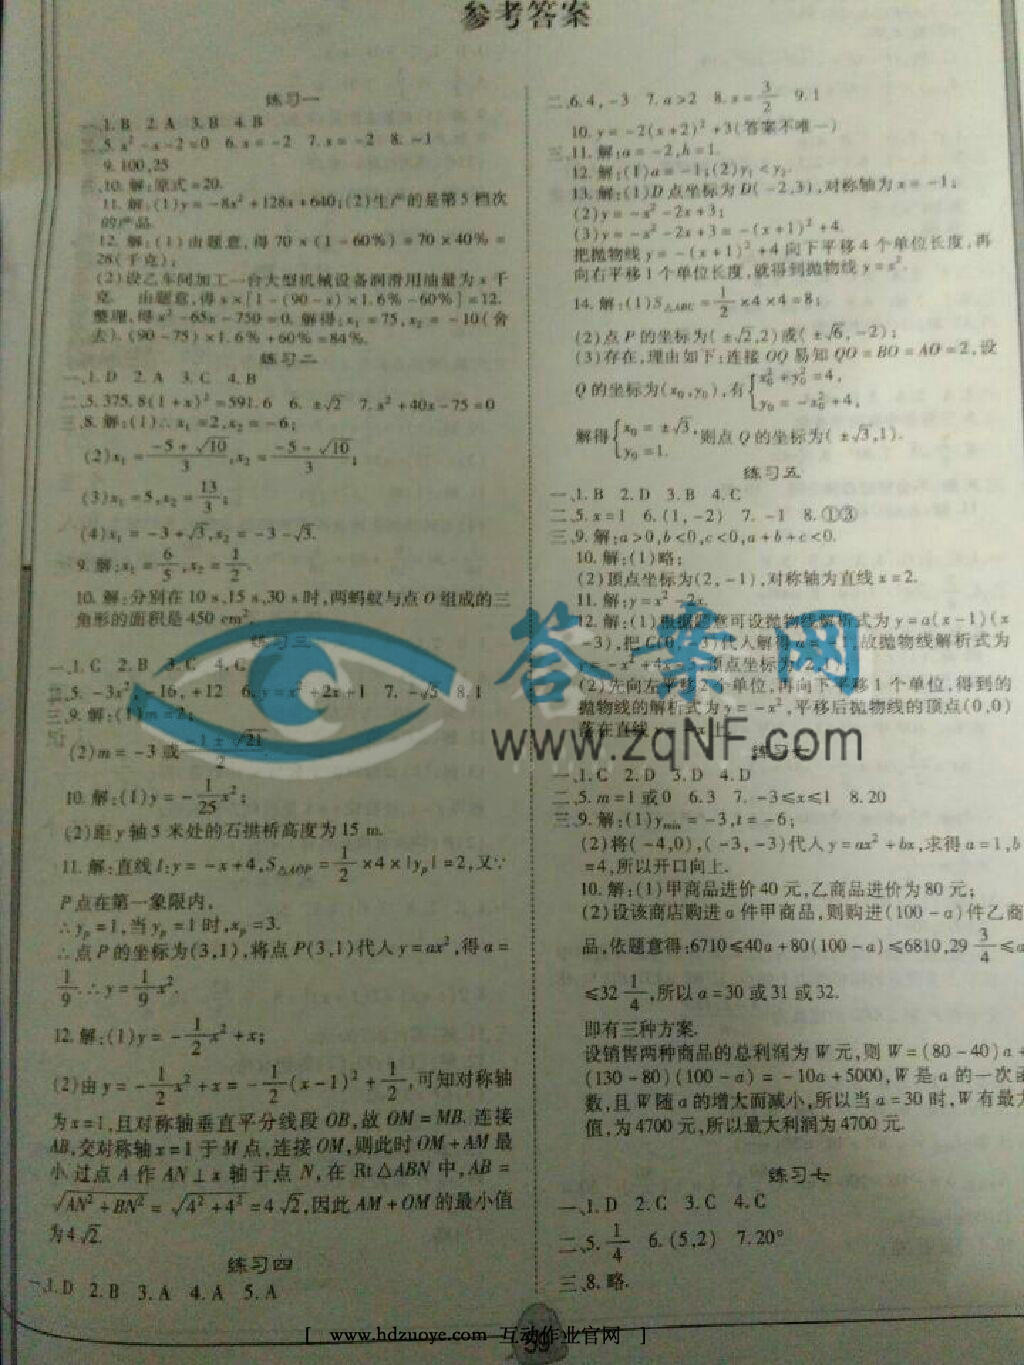 参考答案
练习一
一、1.B 2.A 3.B 4.B
二、5.x²-x-2=0 6.x=-2 7.x=-2 8.-1
9.100,25
三、10.解:原式=20.
11.解:(1)y=-8x²+128x+640;(2)生产的是第5档次
的产品.
12.解:(1)由题意,得70×(1-60%)=70×40%=
28(千克);
(2)设乙车间加工一台大型机械设备润滑用油量为x千
克. 由题意,得x×[1-(90-x)×1.6%-60%]=12.
整理,得x²-65x-750=0.解得:x₁=75,x₂=-10(舍
去).(90-75)×1.6%+60%=84%.
练习二
一、1.D 2.A 3.C 4.B
二、5.375.8(1+x)²=591.6 6.±√2 7.x²+40x-75=0
三、8.解:(1)∴x₁=2,x₂=-6;
(2)x₁=(-5+√10)/3,x₂=(-5-√10)/3;
(3)x₁=5,x₂=13/3;
(4)x₁=-3+√3,x₂=-3-√3.
9.解:x₁=6/5,x₂=1/2.
10.解:分别在10 s,15 s,30 s时,两蚂蚁与点O组成的三
角形的面积是450 cm².
练习三
一、1.C 2.B 3.C 4.C
二、5.-3x²,-16,+12 6.y=x²+2x+1 7.-√5 8.1
三、9.解:(1)m=2;
(2)m=-3或(-1±√21)/2
10.解:(1)y=-1/25x²;
(2)距y轴5米处的石拱桥高度为15 m.
11.解:直线l:y=-x+4,S△AOP=1/2×4×|yₚ|=2,又∵
P点在第一象限内,
∴yₚ=1,当yₚ=1时,xₚ=3.
∴点P的坐标为(3,1),将点P(3,1)代入y=ax²,得a=
1/9.∴y=1/9x².
12.解:(1)y=-1/2x²+x;
(2)由y=-1/2x²+x=-1/2(x-1)²+1/2,可知对称轴
为x=1,且对称轴垂直平分线段OB,故OM=MB.连接
AB,交对称轴x=1于M点,连接OM,则此时OM+AM最
小.过点A作AN⊥x轴于点N,在Rt△ABN中,AB=
√AN²+BN²=√4²+4²=4√2,因此AM+OM的最小值
为4√2.
练习四
一、1.D 2.B 3.A 4.A 5.A
二、6.4,-3 7.a>2 8.x=3/2 9.1
10.y=-2(x+2)²+3(答案不唯一)
三、11.解:a=-2,h=1.
12.解:(1)a=-1;(2)y₁<y₂.
13.解:(1)D点坐标为D(-2,3),对称轴为x=-1;
(2)y=-x²-2x+3;
(3)y=-x²-2x+3=-(x+1)²+4.
把抛物线y=-(x+1)²+4向下平移4个单位长度,再
向右平移1个单位长度,就得到抛物线y=x².
14.解:(1)S△ABC=1/2×4×4=8;
(2)点P的坐标为(±√2,2)或(±√6,-2);
(3)存在,理由如下:连接OQ易知QO=BO=AO=2,设
Q的坐标为(x₀,y₀),有{x₀²+y₀²=4, y₀=-x₀²+4,
解得{x₀=±√3, y₀=1. 则点Q的坐标为(±√3,1).
练习五
一、1.B 2.D 3.B 4.C
二、5.x=1 6.(1,-2) 7.-1 8.①③
三、9.解:a>0,b<0,c<0,a+b+c<0.
10.解:(1)略;
(2)顶点坐标为(2,-1),对称轴为直线x=2.
11.解:y=x²-2x.
12.解:(1)根据题意可设抛物线解析式为y=a(x-1)(x
-3),把C(0,-3)代入解得a=-1,故抛物线解析式为
y=-x²+4x-3,顶点坐标为(2,1).
(2)先向左平移2个单位,再向下平移1个单位,得到的
抛物线的解析式为y=-x²,平移后抛物线的顶点(0,0)
落在直线y=-x上.
练习六
一、1.C 2.D 3.D 4.D
二、5.m=1或0 6.3 7.-3≤x≤1 8.20
三、9.解:(1)yₘᵢₙ=-3,t=-6;
(2)将(-4,0),(-3,-3)代入y=ax²+bx,求得a=1,b
=4,所以开口向上.
10.解:(1)甲商品进价40元,乙商品进价为80元;
(2)设该商店购进a件甲商品,则购进(100-a)件乙商
品,依题意得:6710≤40a+80(100-a)≤6810,29 3/4≤a
≤32 1/4,所以a=30或31或32.
即有三种方案.
设销售两种商品的总利润为W元,则W=(80-40)a+
(130-80)(100-a)=-10a+5000,W是a的一次函
数,且W随a的增大而减小,所以当a=30时,W有最大
值,为4700元,所以最大利润为4700元.
练习七
一、1.D 2.C 3.C 4.C
二、5.1/4 6.(5,2) 7.20°
三、8.略.
答案网
www.zqNF.com
59
[ www.hdzuoye.com 互动作业官网 ]